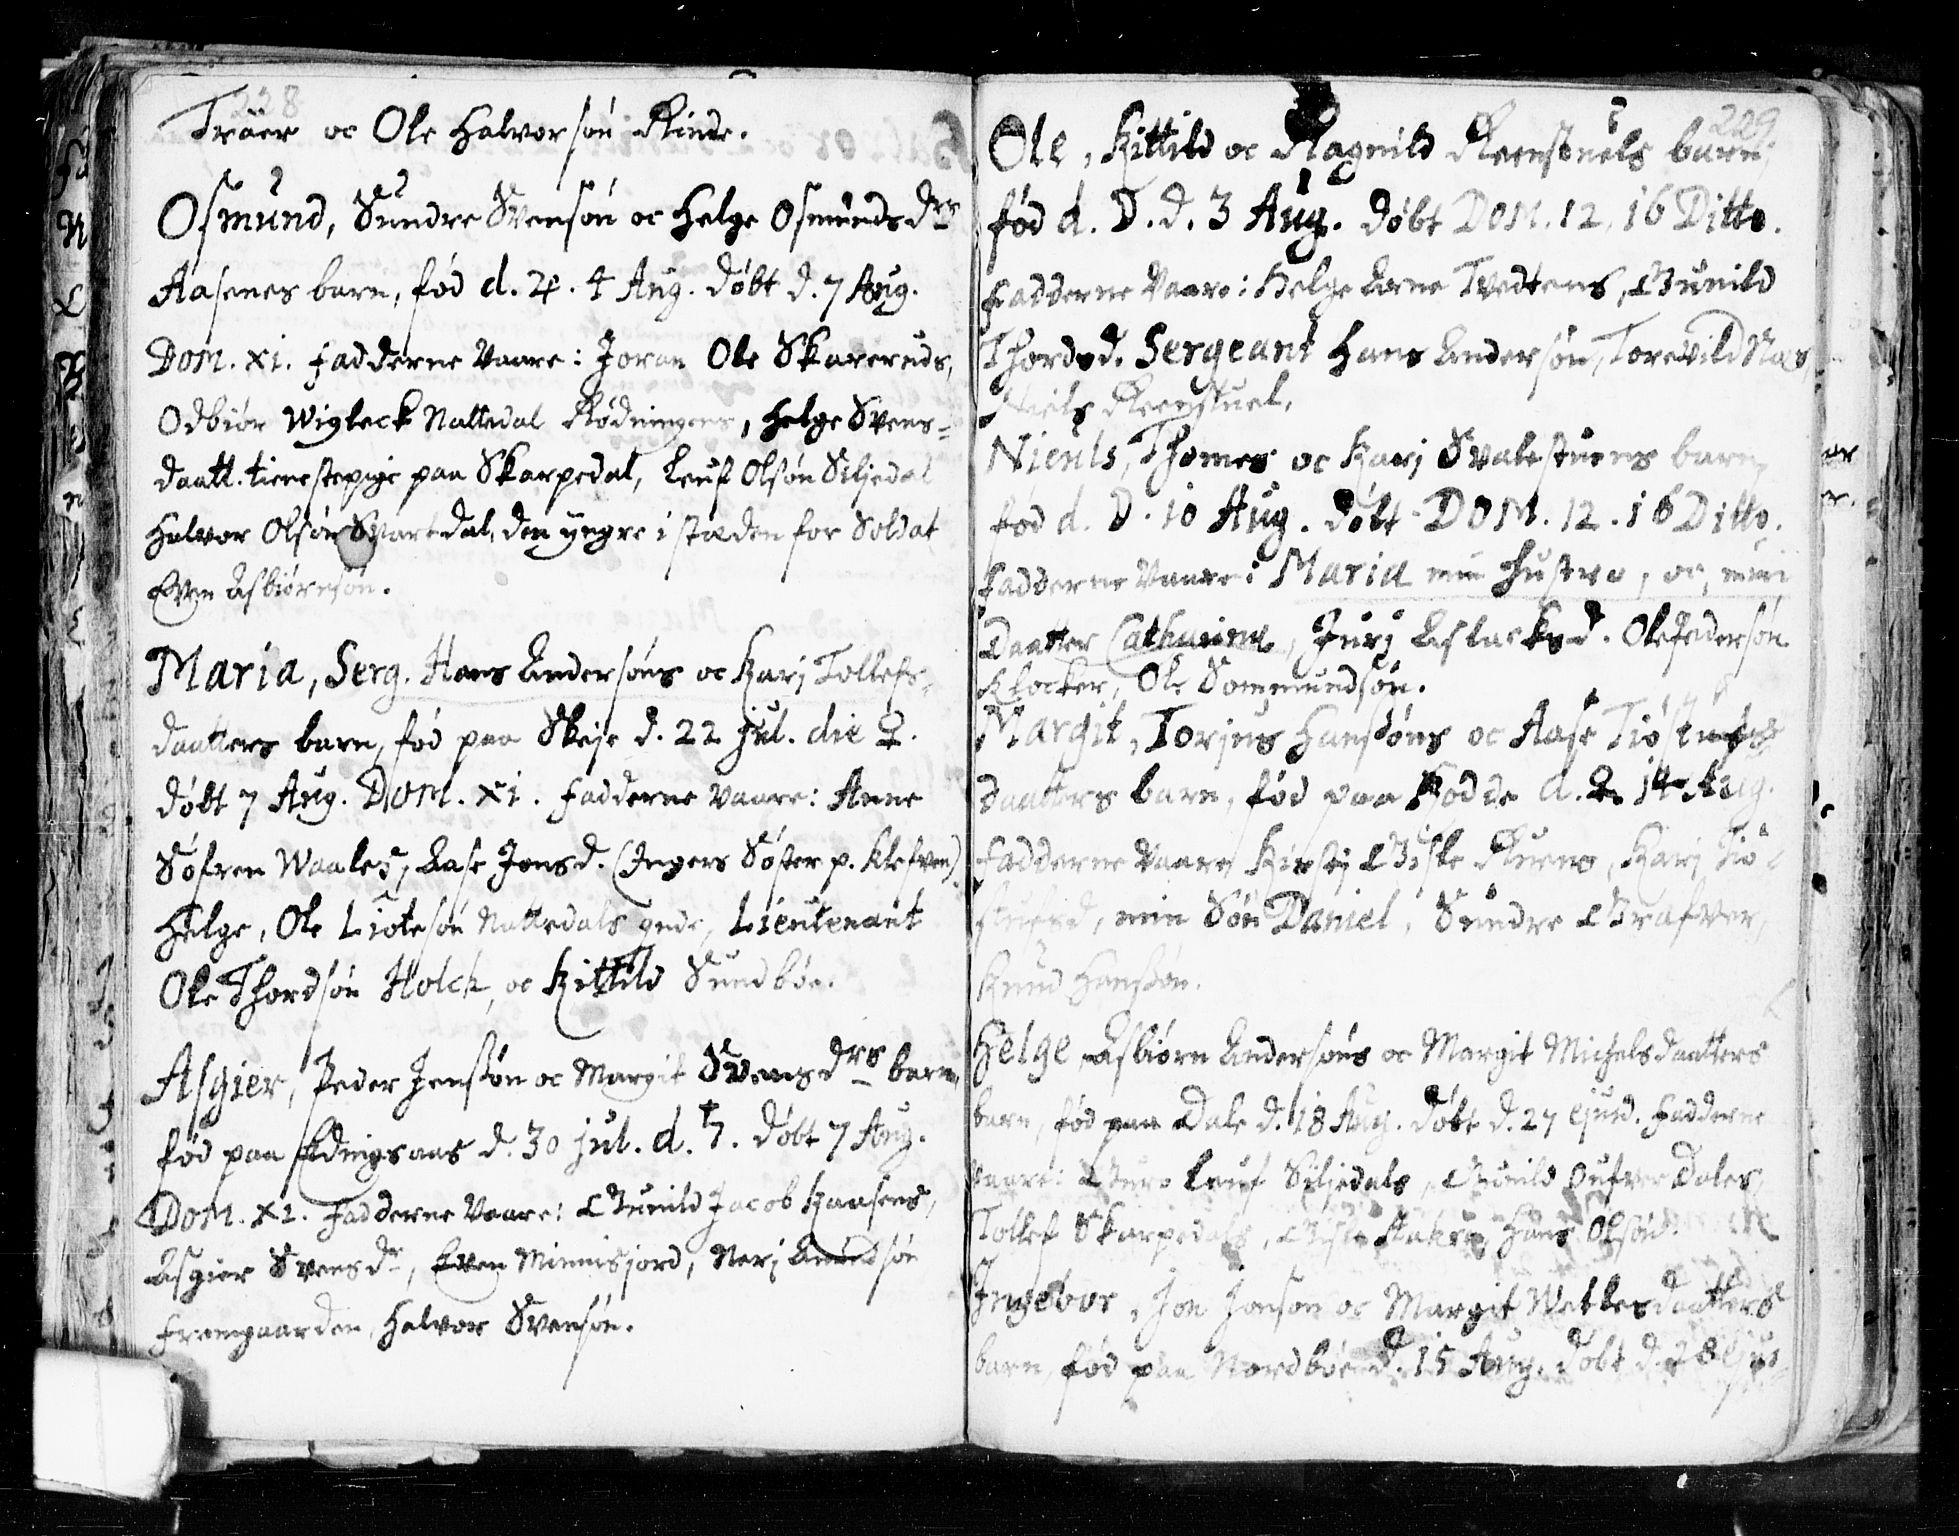 228
Træer oc Ole Halvorsøn Rinde.
Osmund, Sundre Svensøn oc Helge Osmunds drs
Aasenes barn, fød d. ♃. 4 Aug. døbt d. 7 Aug.
Dom. XI. Fadderne Vaare: Joran Ole Skareruds,
Odbiør Wigleck Nattedal Rødningens, Helge Svens-
daatt. tienestepige paa Skarpedal, Leuf Olsøn Siljedal
Halvor Olsøn Svartdal, den yngre i stæden for Soldat
Even Asbiørnsøn.
Maria, Serg. Hans Andersøns oc Karj Tollefs-
daatters barn, fød paa Skeje d. 22 Jul. die ♀.
døbt 7 Aug. Dom. XI. Fadderne Vaare: Anne
Søfren Waales, Aase Jonsd. (Ingers Søster p. Klefven)
Helge, Ole Liotesøn Nattedals qvde, Lieutenant
Ole Thordsøn Holck, oc Kittild Sundbøe.
Asgier, Peder Jensøn oc Margit Svens drs barn,
fød paa Ednigsaas d. 30 Jul. d. ♄. døbt 7 Aug.
Dom. XI. Fadderne Vaare: Gunild Jacob Kaasens,
Asgier Svens dr, Even Minnisjord, Nerj Amundsøn
Fremgaarden, Halvor Svensøn.
229
Ole, Kittild oc Ragnild Reenstuels barn,
fød d. D. d. 3 Aug. døbt DOM. 12. 16 Ditto.
Fadderne Vaare: Helge Arne Tvedtens, Gunild
Thordsd. Sergeant Hans Andersøn, Torevild Næs,
Niels Reenstuel.
Nieuls, Thomes oc Karj Svalestuens barn,
fød d. D. 10 Aug. døbt DOM. 12. 16 Ditto.
Fadderne Vaare: Maria min hustro, oc, min
Daatter Catharina, Jurj Aslacksd. Ole Pedersøn
Klocker, Ole Sommundsøn.
Margit, Torjus Hansøns oc Aase
daatters barn, fød paa Hødde d. 14 Aug.
Fadderne Vaare Kirstj Gisle Ruens, Karj Tiø-
stuesd, min Søn Daniel, Sundre Grafver,
Knud Hansøn.
Helge, Asbiørn Andersøns oc Margit Michelsdaatters
barn, fød paa Dale d. 18 Aug. døbt d. 27 ejusd. Fadderne
vaare: Guro Leuf Siljedals, Gunild Dales,
Tollef Skarpedals, Gisle Hans Olsøn.
Ingebor, Jon Jonsøn oc Margit Wetlesdaatters
barn, fød paa Nordbøe d. 15 Aug. døbt d. 28 ejus